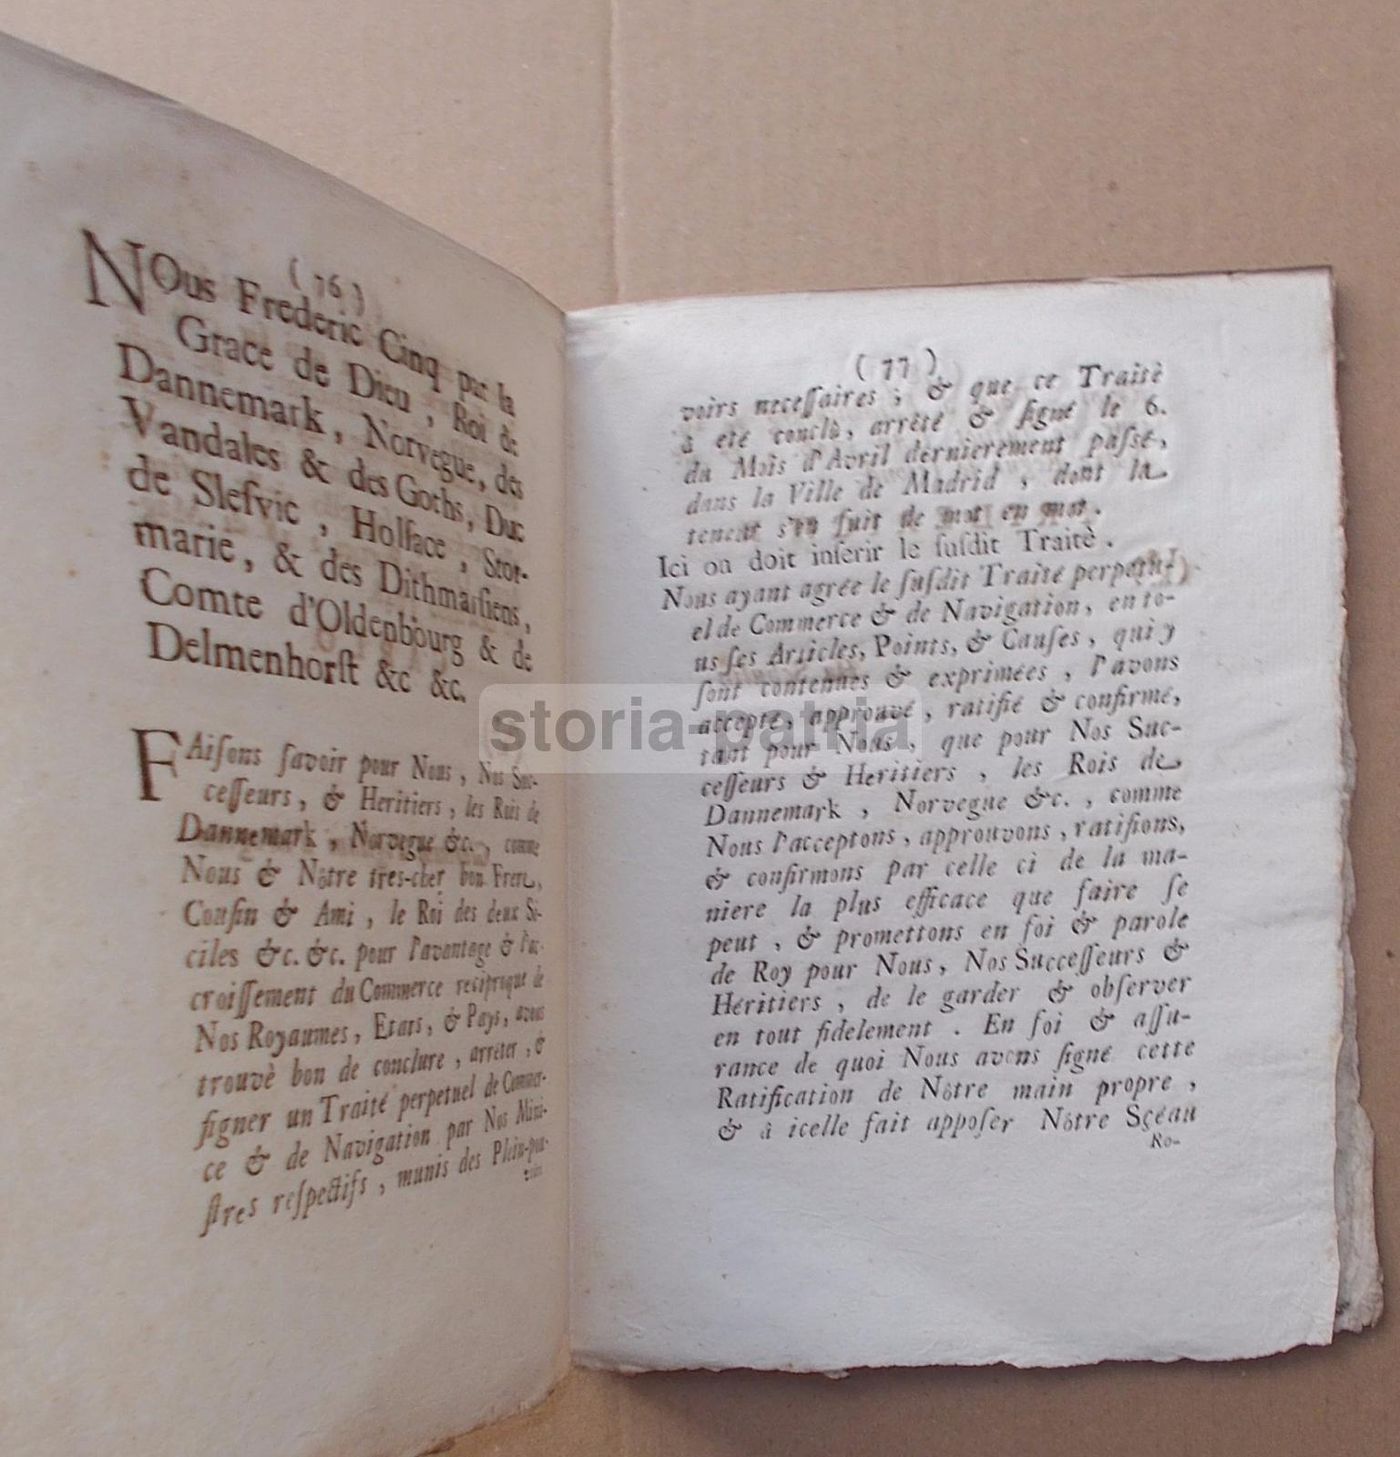 ( 76 )
NOus Frederic Cinq par la
Grace de Dieu, Roi de
Dannemark, Norvegue, des
Vandales & des Goths, Duc
de Slesvic, Holsace, Stor-
marie, & des Dithmarsiens,
Comte d'Oldenbourg & de
Delmenhorst &c &c.
FAisons savoir pour Nous, Nos Suc-
cesseurs, & Heritiers, les Rois de
Dannemark, Norvegue &c., comme
Nous & Nôtre tres-cher bon Frere,
Cousin & Ami, le Roi des deux Si-
ciles &c. &c. pour l'avantage & l'ac-
croissement du Commerce reciproque de
Nos Royaumes, Etats, & Pays, avons
trouvè bon de conclure, arrêter, &
signer un Traité perpetuel de Commer-
ce & de Navigation par Nos Mini-
stres respectifs, munis des Plein-pou-
voirs
( 77 )
voirs necessaires; & que ce Traitè
à eté conclû, arrêté & signé le 6.
du Moïs d'Avril dernierement passé,
dans la Ville de Madrid, dont la
teneur s'en suit de mot en mot.
Ici on doit inserir le susdit Traitè.
Nous ayant agrée le susdit Traité perpetu-
el de Commerce & de Navigation, en to-
us ses Articles, Points, & Causes, qui y
sont contenues & exprimées, l'avons
accepté, approuvé, ratifié & confirmé,
tant pour Nous, que pour Nos Suc-
cesseurs & Heritiers, les Rois de
Dannemark, Norvegue &c., comme
Nous l'acceptons, approuvons, ratifions,
& confirmons par celle ci de la ma-
niere la plus efficace que faire se
peut, & promettons en foi & parole
de Roy pour Nous, Nos Successeurs &
Héritiers, de le garder & observer
en tout fidelement. En foi & assu-
rance de quoi Nous avons signé cette
Ratification de Nôtre main propre,
& à icelle fait apposer Nôtre Sçéau
Ro-
storia-patria